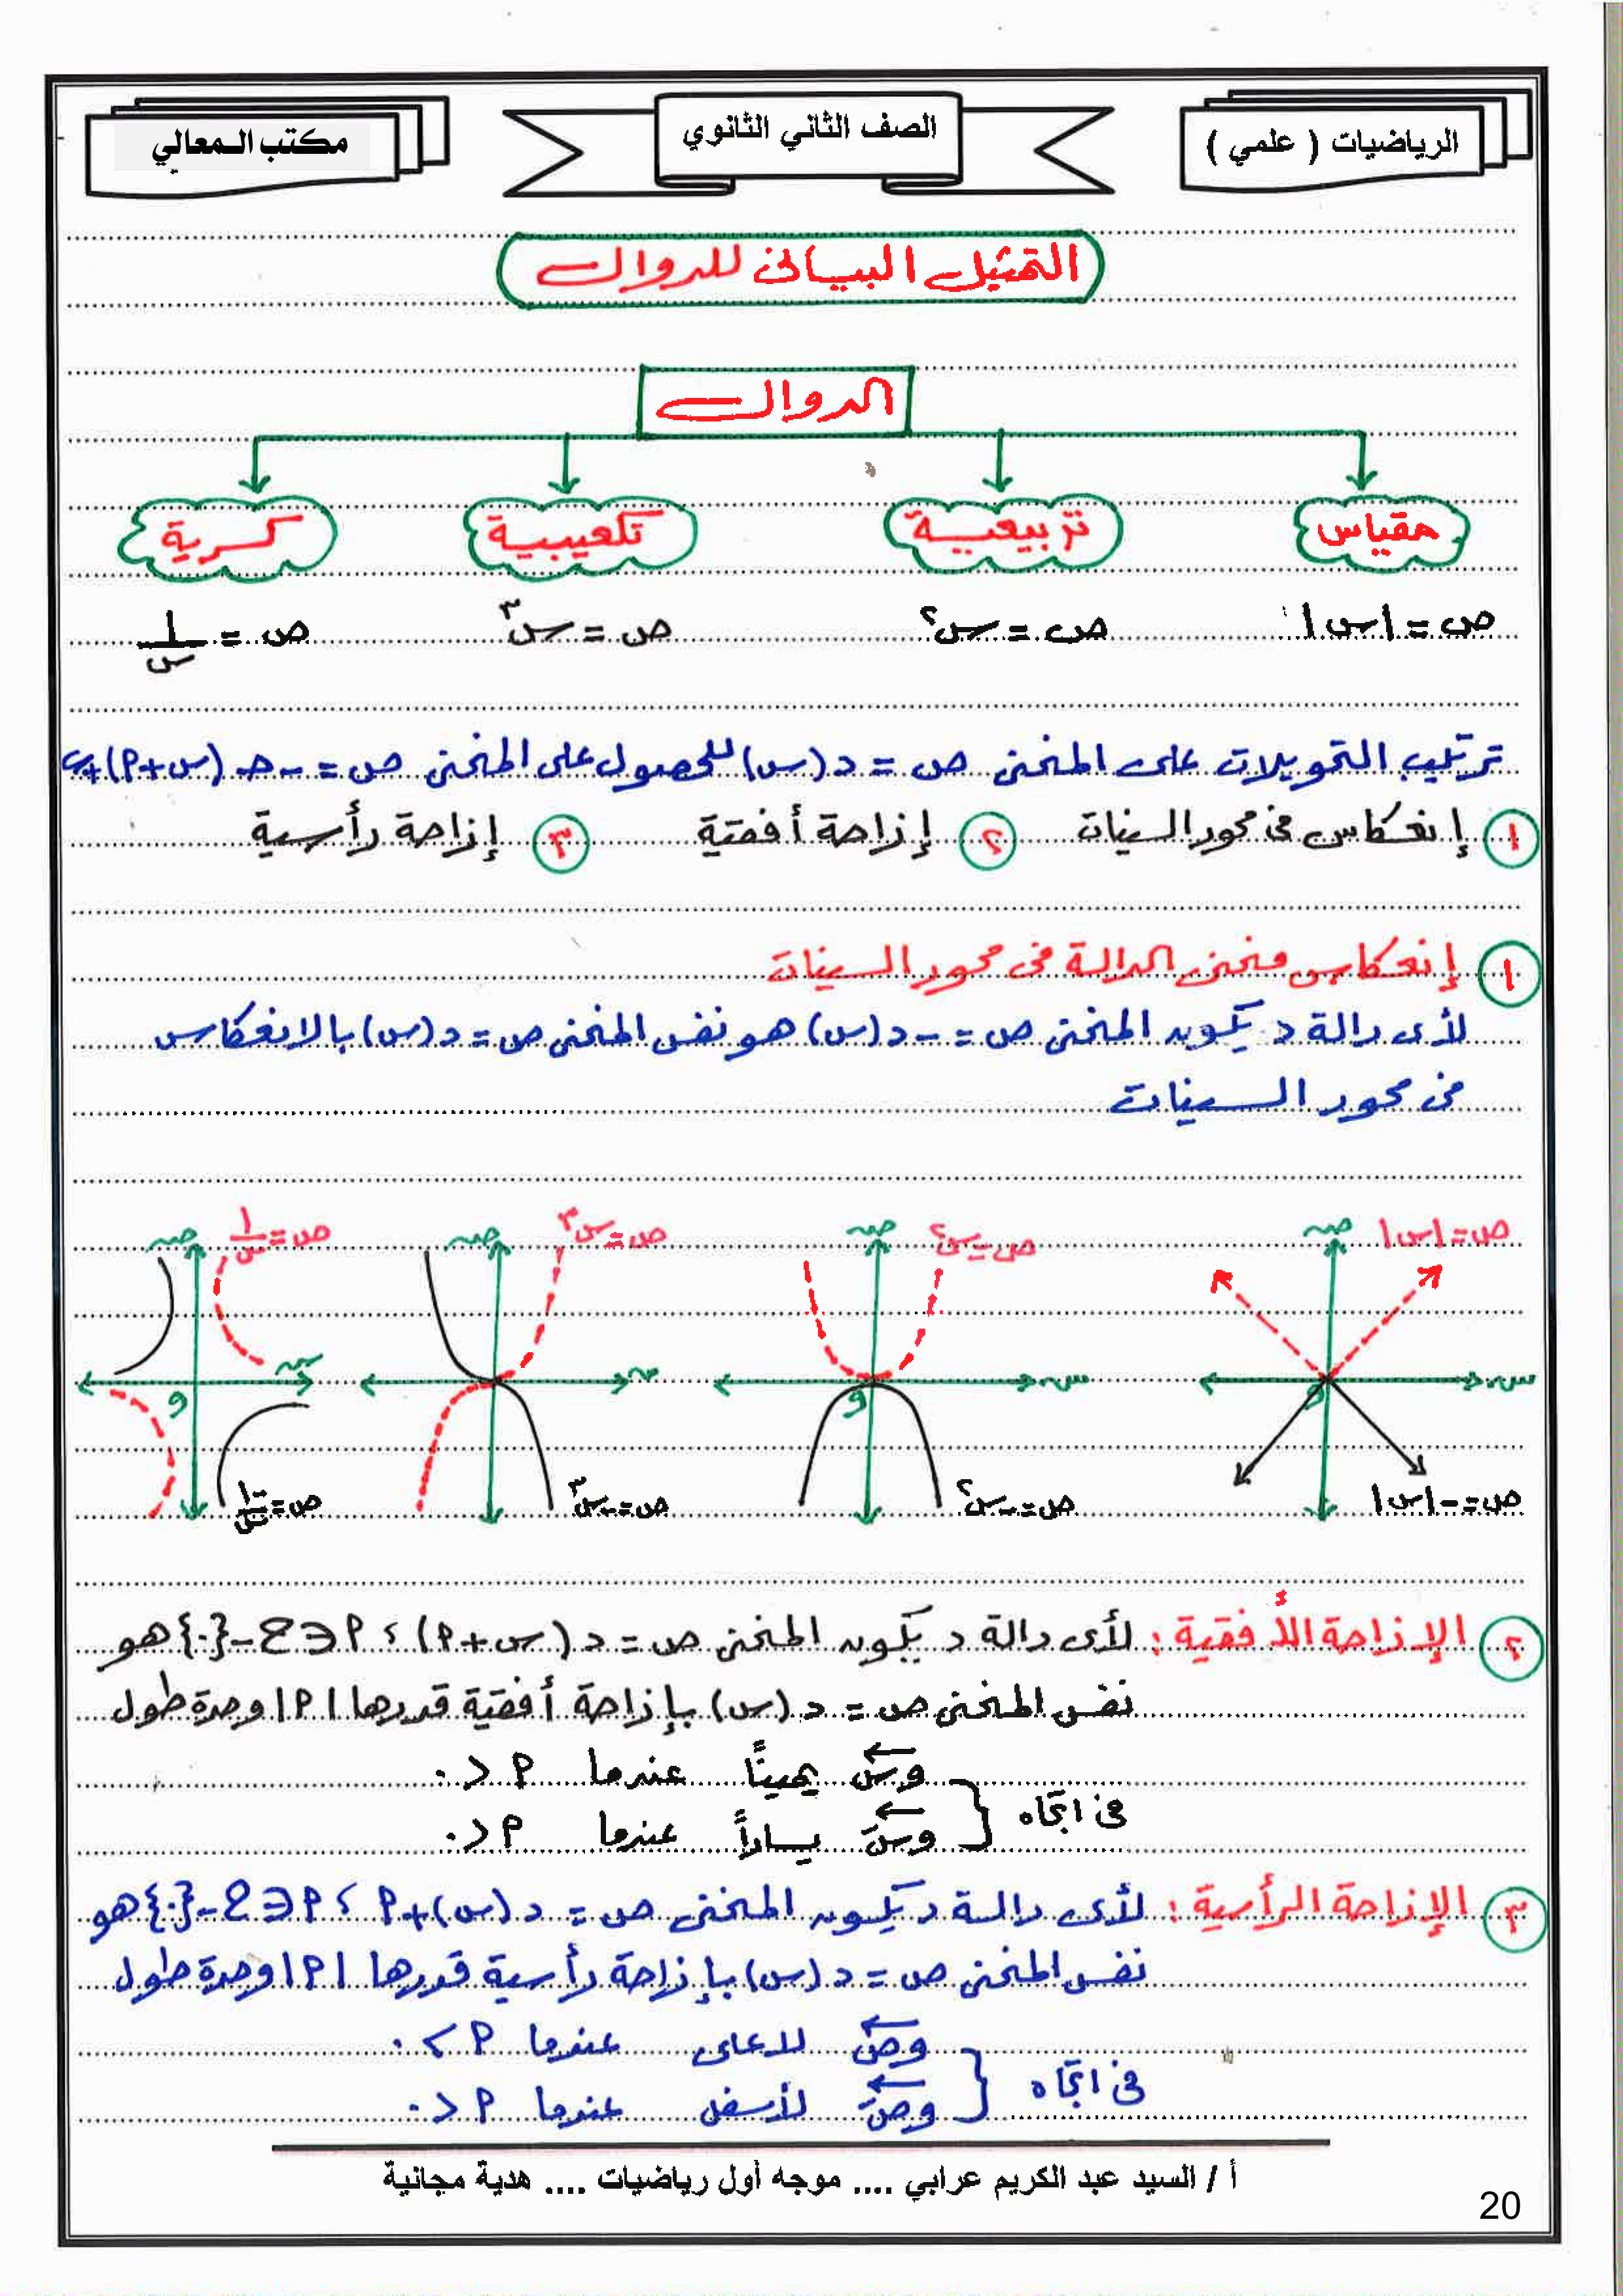 الرياضيات ( علمي )
الصف الثاني الثانوي
مكتب المعالي
التمثيل البيانى للدوال
الدوال
مقياس
تربيعية
تكعيبية
كسرية
ص = |س|
ص = س٢
ص = س٣
ص = ١/س
ترتيب التحويلات على المنحنى ص = د (س) للحصول على المنحنى ص = - د (س + P) + ب
١ إنعكاس فى محور السينات ٢ إزاحة أفقية ٣ إزاحة رأسية
١ إنعكاس منحنى الدالة فى محور السينات
لأى دالة د يكون المنحنى ص = - د (س) هو نفس المنحنى ص = د (س) بالانعكاس
فى محور السينات
ص = |س| ص س و ص = - |س|
ص = س٢ ص س و ص = - س٢
ص = س٣ ص س ص = - س٣
ص = ١/س ص س و ص = -١/س
٢ الإزاحة الأفقية : لأى دالة د يكون المنحنى ص = د (س + P) ، P ∈ ح - {٠} هو
نفس المنحنى ص = د (س) بإزاحة أفقية قدرها |P| وحدة طول
فى اتجاه { وس يميناً عندما P < ٠
وسَ يساراً عندما P > ٠
٣ الإزاحة الرأسية : لأى دالة د يكون المنحنى ص = د (س) + P ، P ∈ ح - {٠} هو
نفس المنحنى ص = د (س) بإزاحة رأسية قدرها |P| وحدة طول
فى اتجاه { وص لاعلى عندما P > ٠
وصَ لأسفل عندما P < ٠
أ / السيد عبد الكريم عرابي .... موجه أول رياضيات .... هدية مجانية
20